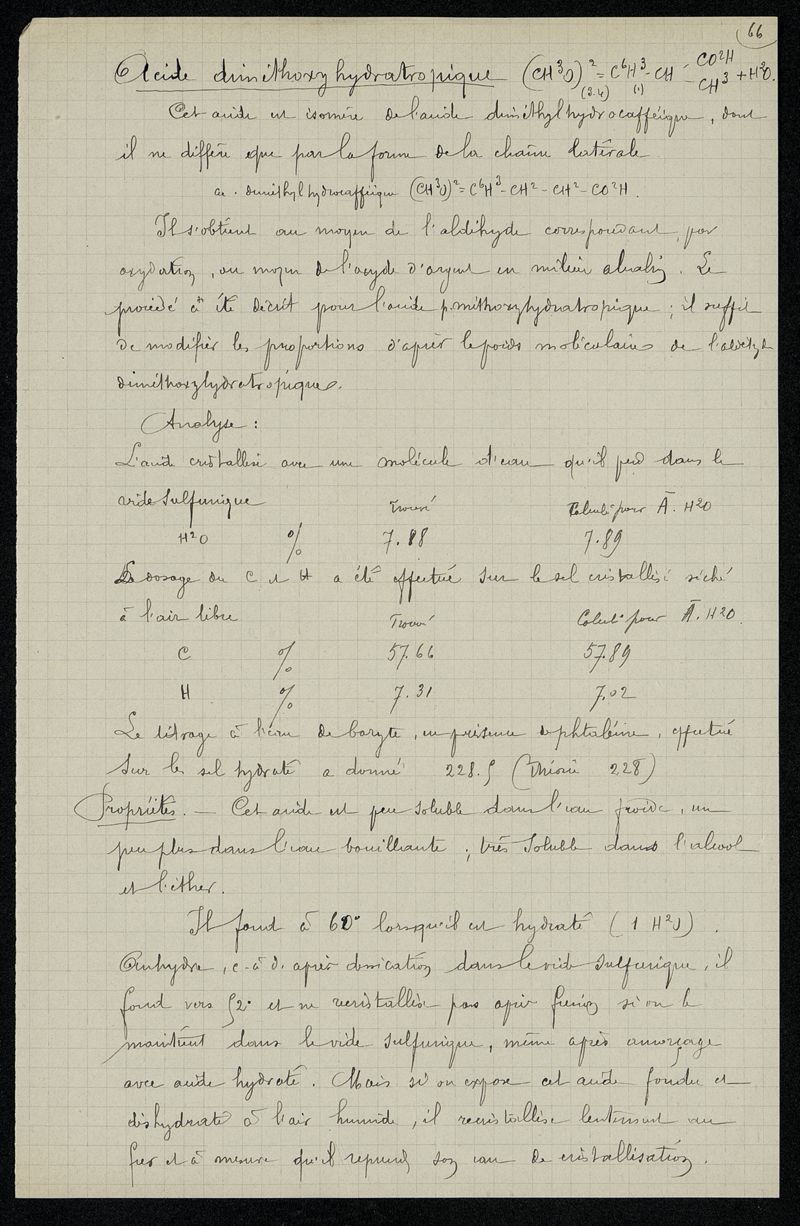 66
Acide diméthoxyhydratropique (CH³O)² = C⁶H³ - CH - CO²H
(3.4) (1) CH³ + H²O.
Cet acide est isomère de l'acide diméthylhydrocafféique, dont
il ne diffère que par la forme de la chaîne latérale
ac. diméthylhydrocafféique (CH³O)² = C⁶H³ - CH² - CH² - CO²H.
Il s'obtient au moyen de l'aldéhyde correspondant, par
oxydation, au moyen de l'oxyde d'argent en milieu alcalin. Le
procédé a été décrit pour l'acide p.méthoxyhydratropique ; il suffit
de modifier les proportions d'après le poids moléculaire de l'aldéhyde
diméthoxyhydratropique.
Analyse :
L'acide cristallise avec une molécule d'eau qu'il perd dans le
vide sulfurique Trouvé Calculé pour Ā. H²O
H²O % 7.88 7.89
Le dosage du C et H a été effectué sur le sel cristallisé séché
à l'air libre Trouvé Calculé pour Ā. H²O.
C % 57.66 57.89
H % 7.31 7.02
Le titrage à l'eau de baryte, en présence de phtaléine, effectué
sur le sel hydraté a donné 228.5 (Théorie 228)
Propriétés. — Cet acide est peu soluble dans l'eau froide, un
peu plus dans l'eau bouillante ; très soluble dans l'alcool
et l'éther.
Il fond à 60° lorsqu'il est hydraté (1 H²O).
Anhydre, c-à-d. après dessication dans le vide sulfurique, il
fond vers 52° et ne recristallise pas après fusion si on le
maintient dans le vide sulfurique, même après amorçage
avec acide hydraté. Mais si on expose cet acide fondu et
déshydraté à l'air humide, il recristallise lentement au
fur et à mesure qu'il reprend son eau de cristallisation.